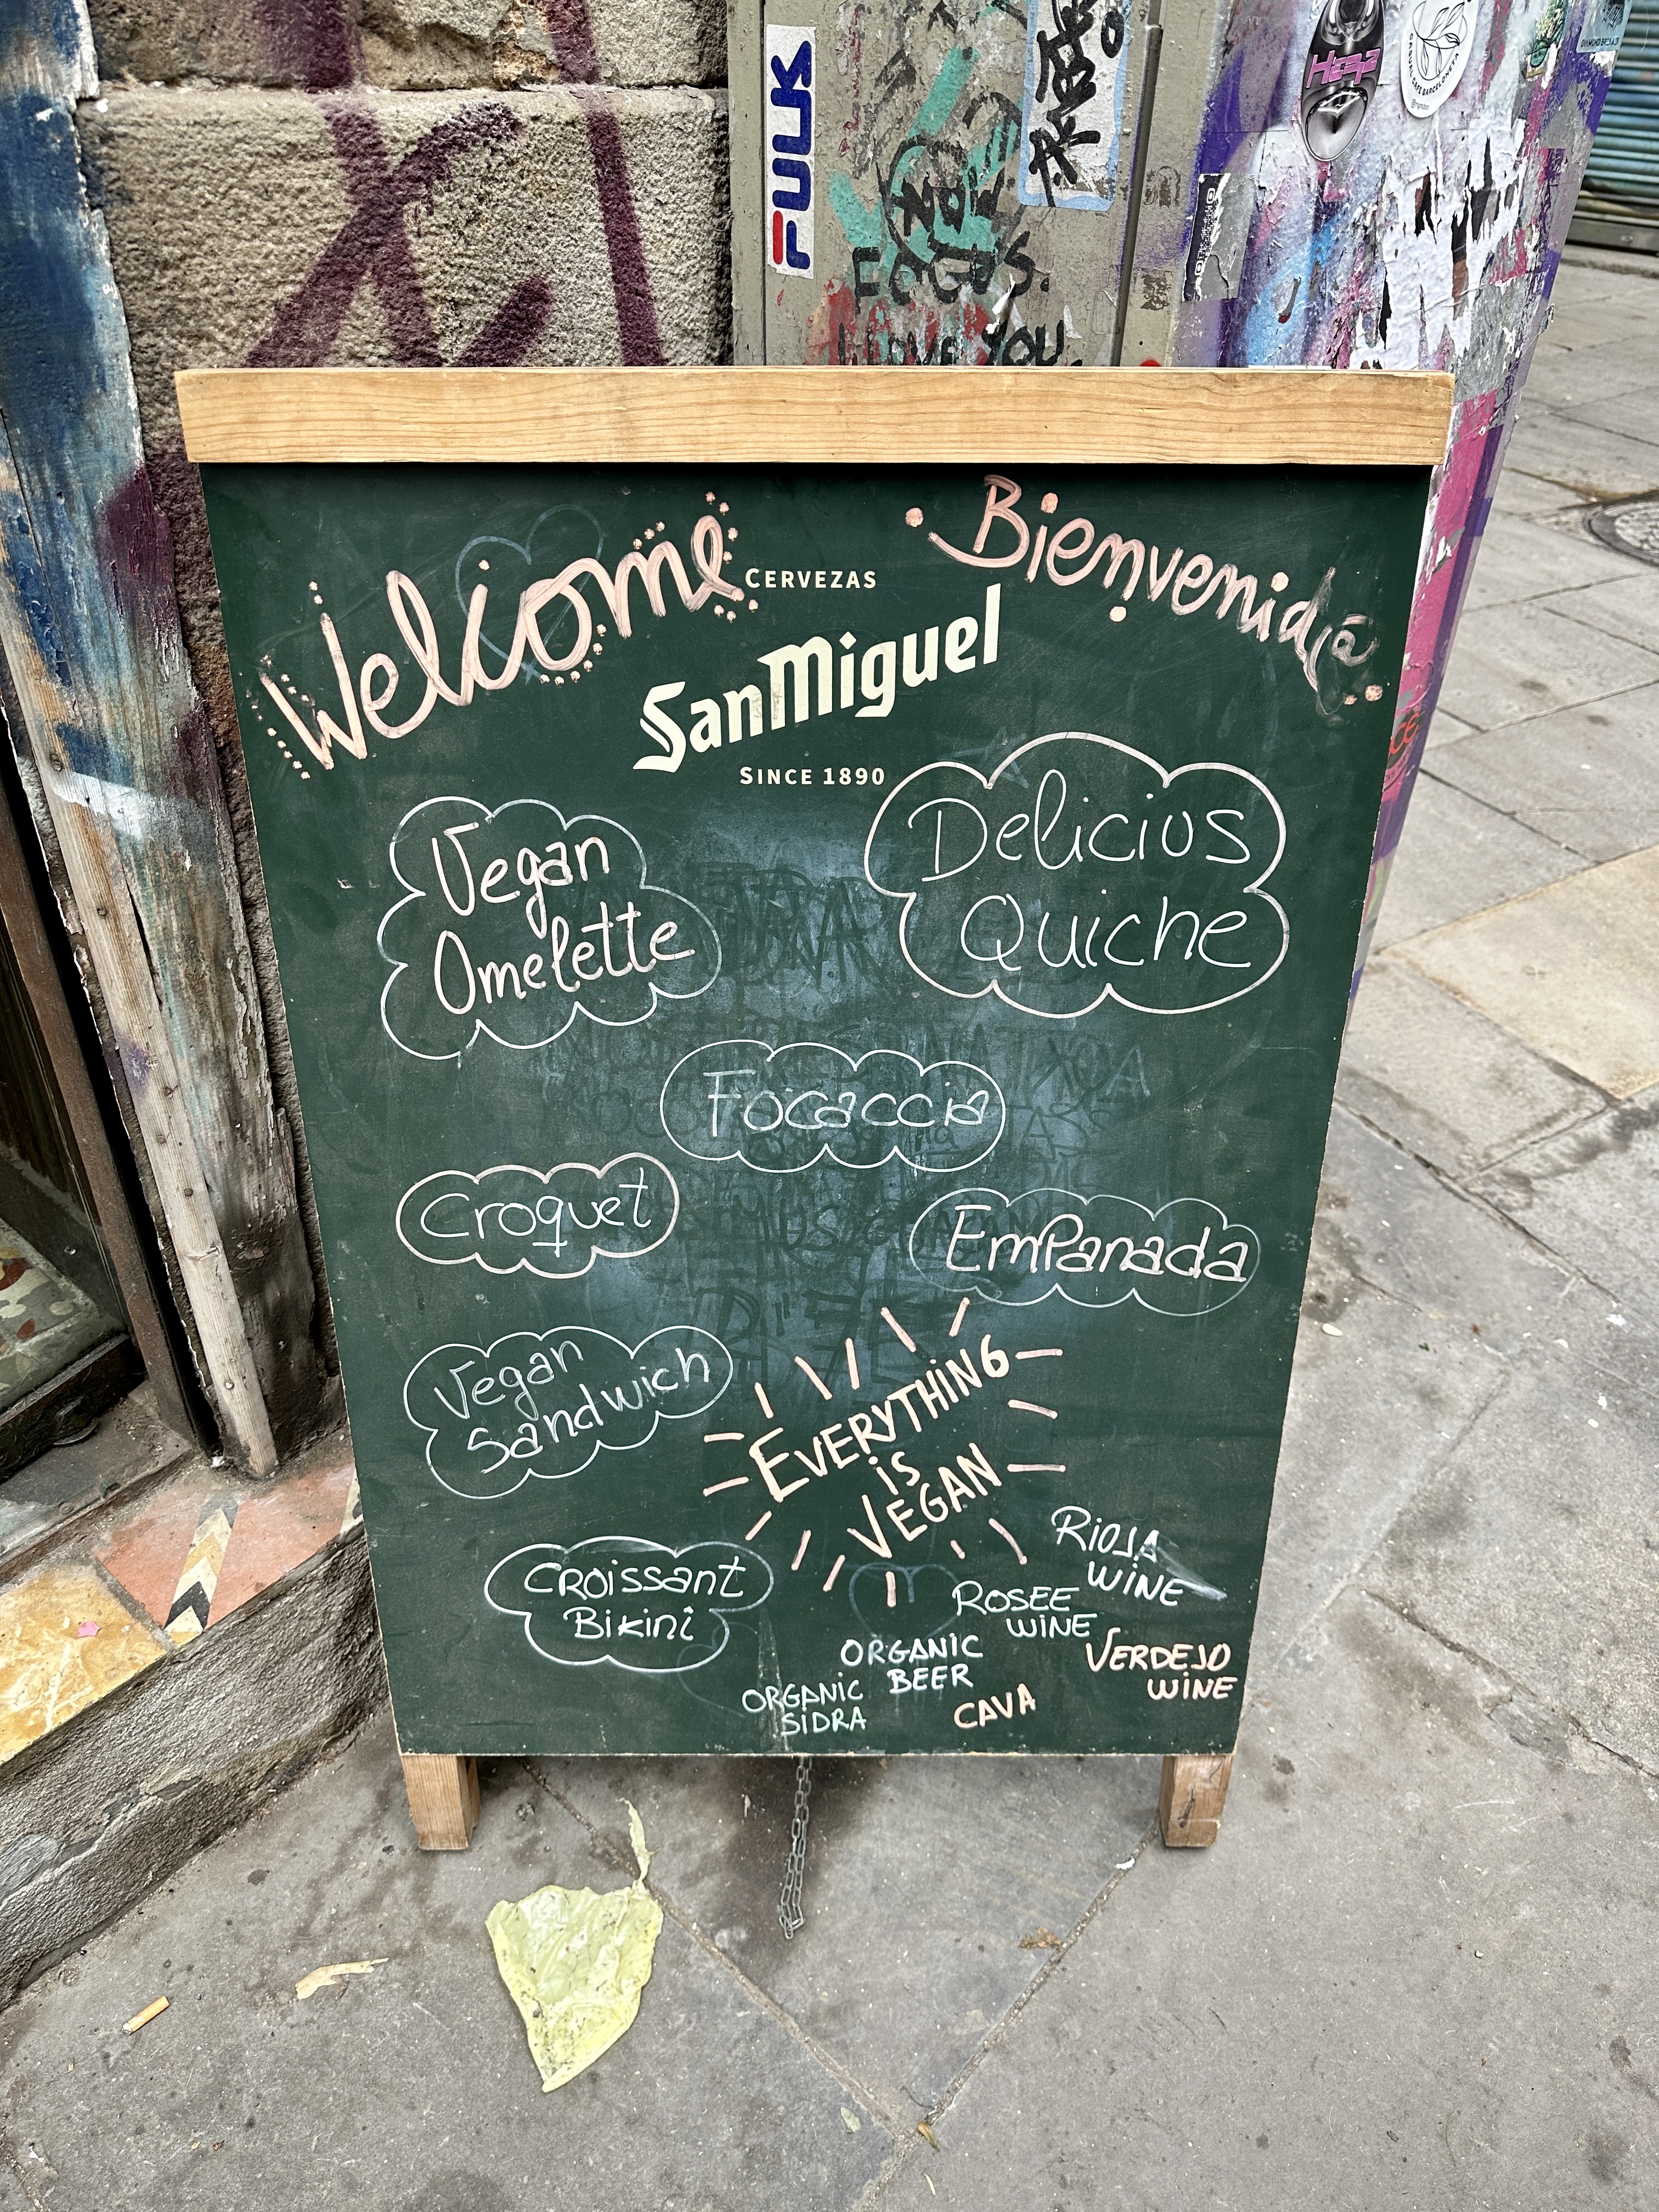 FULK
NOW
FOCUS.
I LOVE YOU.
Welcome
Bienvenid@
CERVEZAS
San Miguel
SINCE 1890
Vegan
Omelette
Delicius
Quiche
Focaccia
Croquet
EmPanada
Vegan
Sandwich
EVERYTHING
is
VEGAN
CROissant
Bikini
RIOJA
WINE
ROSEE
WINE
ORGANIC
BEER
VERDEJO
WINE
ORGANIC
SIDRA
CAVA